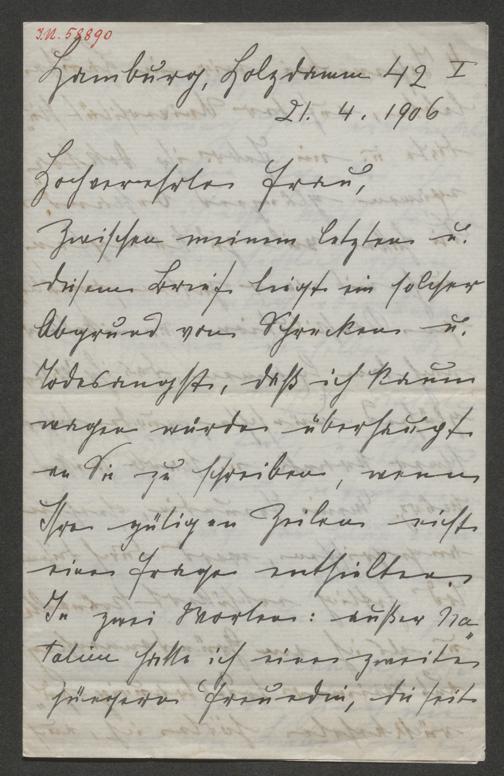 I.N. 58890
Hamburg, Holzdamm 42 I
21. 4. 1906
Hochverehrte Frau,
Zwischen meinem letzten u.
diesem Brief liegt ein solcher
Abgrund von Schrecken u.
Todesangst, daß ich kaum
wagen würde überhaupt
an Sie zu schreiben, wenn
Ihre gütigen Zeilen nicht
eine Frage enthielten.
In zwei Worten: außer Na
talien hatte ich eine zweite
jüngere Freundin, die seit